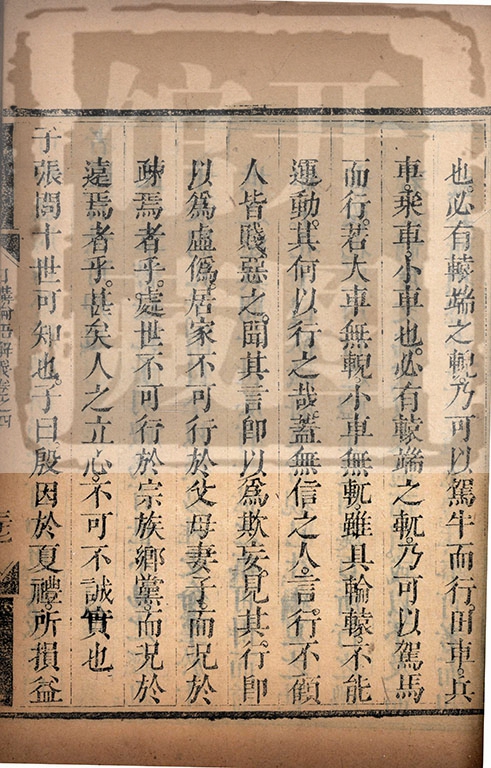 也必有轅端之輗乃可以駕牛而行田車兵
車乘車小車也必有轅端之軏乃可以駕馬
而行若大車無輗小車無軏雖具輪轅不能
運動其何以行之哉蓋無信之人言行不顧
人皆賤惡之聞其言卽以爲欺妄見其行卽
以爲虛僞居家不可行於父母妻子而况於
疎焉者乎處世不可行於宗族鄉黨而况於
違焉者乎甚矣人之立心不可不誠實也
子張問十世可知也子曰殷因於夏禮所損益
日講論語解義卷之四